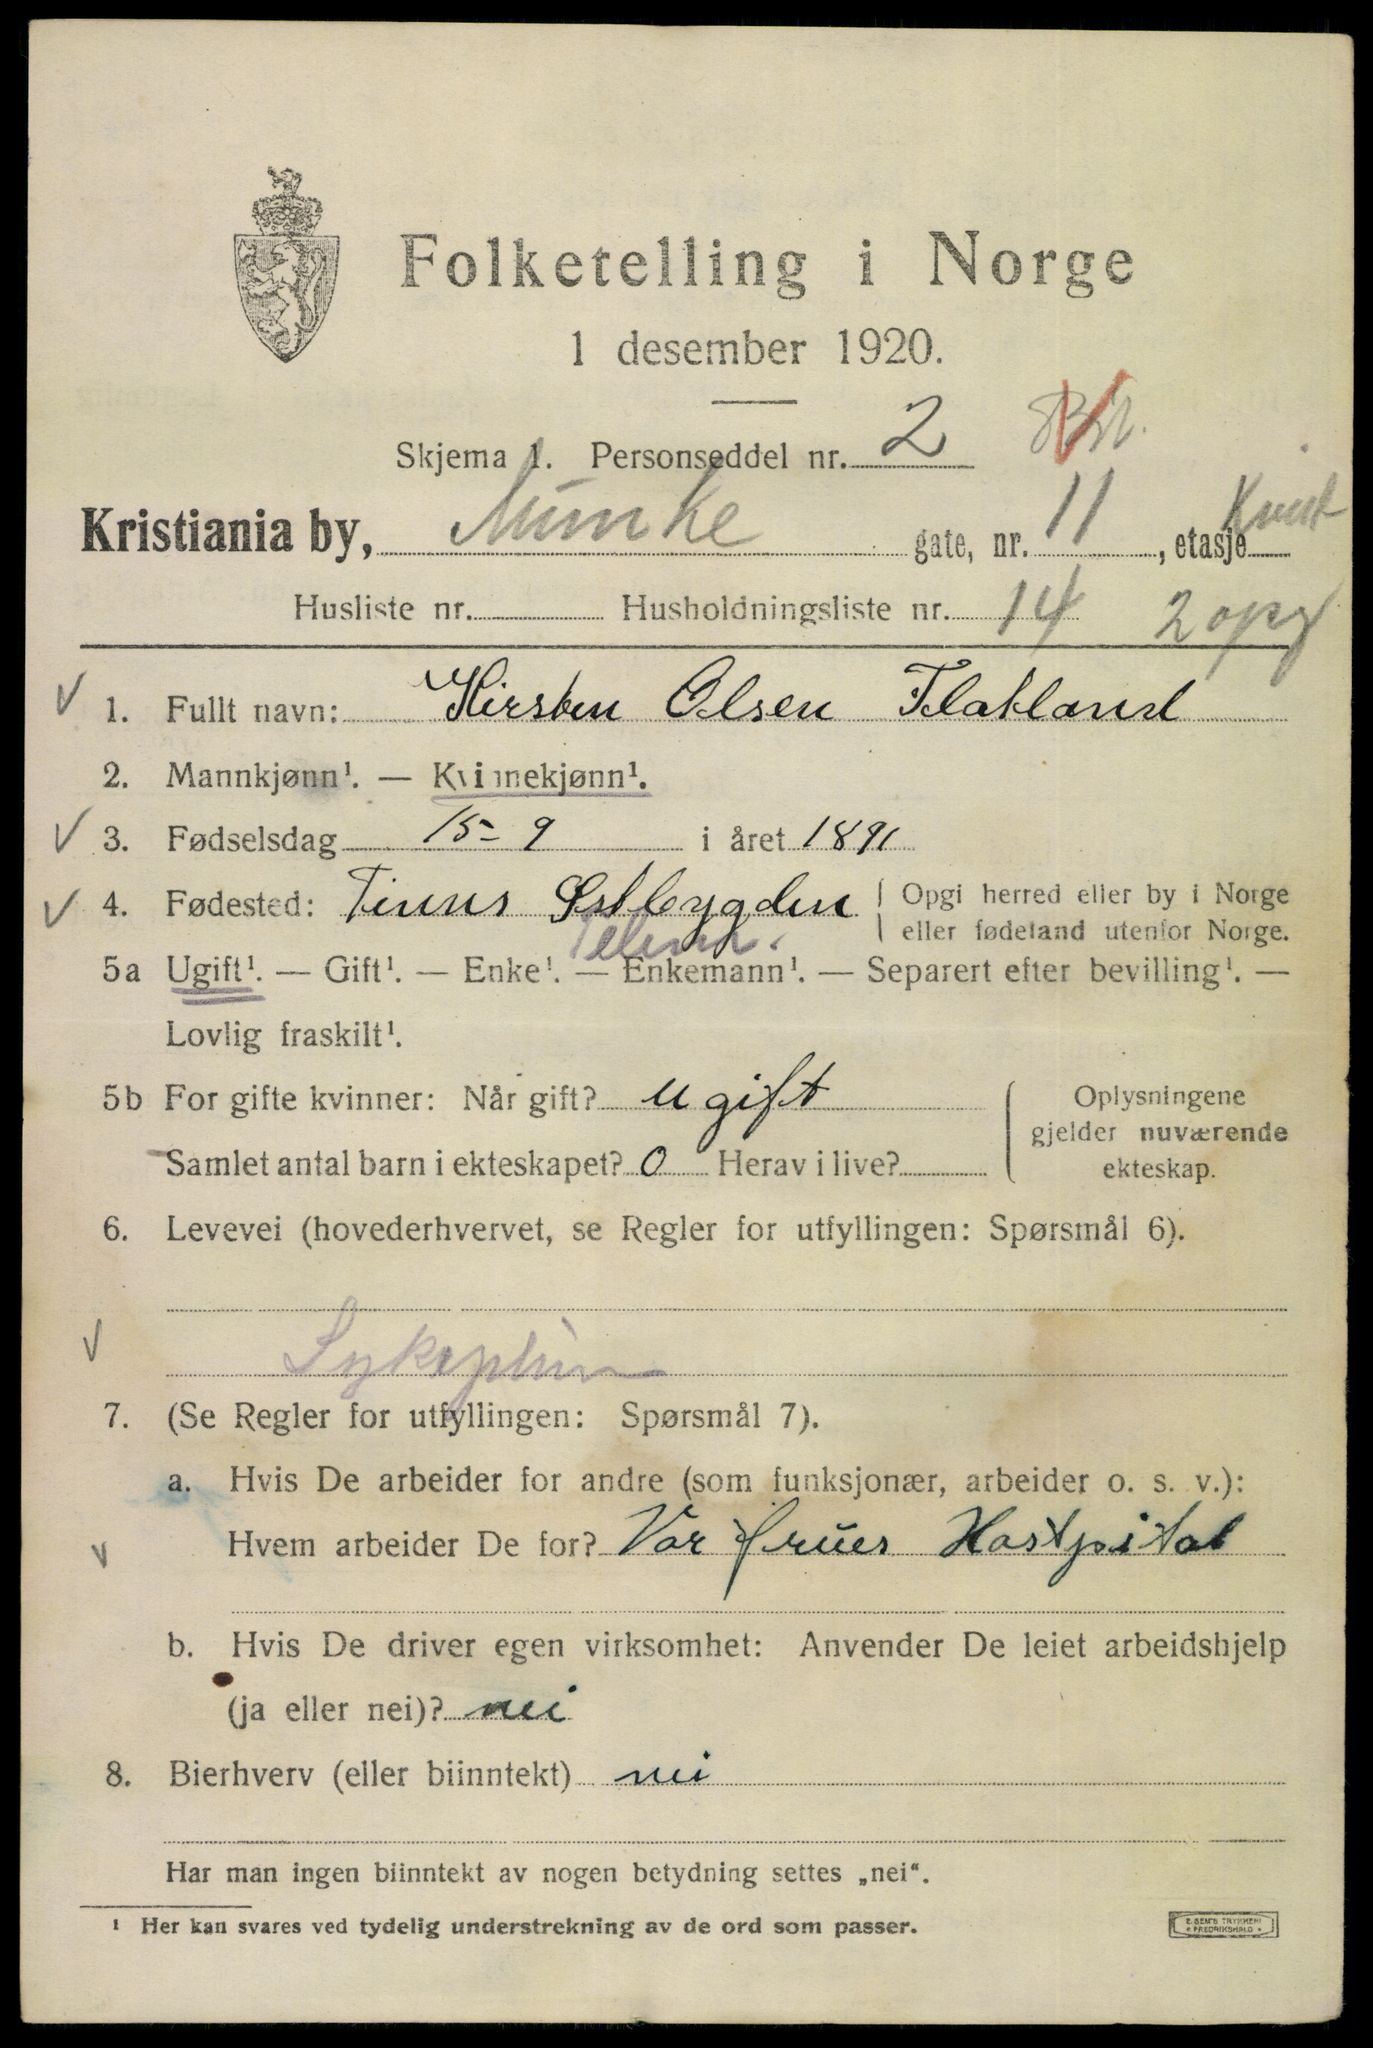 Folketelling i Norge
1 desember 1920.
Skjema 1. Personseddel nr. 2
Kristiania by, Munke gate, nr. 11, etasje Kvist
Husliste nr. Husholdningsliste nr. 14 2 opg
1. Fullt navn: Kirsten Olsen Flatland
2. Mannkjønn¹. — Kvinnekjønn¹.
3. Fødselsdag 15-9 i året 1891
4. Fødested: Tinns Østbygden Opgi herred eller by i Norge
eller fødeland utenfor Norge.
Telem.
5a Ugift¹. — Gift¹. — Enke¹. — Enkemann¹. — Separert efter bevilling¹. —
Lovlig fraskilt¹.
5b For gifte kvinner: Når gift? ugift
Samlet antal barn i ekteskapet? 0 Herav i live?
Oplysningene
gjelder nuværende
ekteskap.
6. Levevei (hovederhvervet, se Regler for utfyllingen: Spørsmål 6).
Sykepleierske
7. (Se Regler for utfyllingen: Spørsmål 7).
a. Hvis De arbeider for andre (som funksjonær, arbeider o. s. v.):
Hvem arbeider De for? Vor frues Hostpital
b. Hvis De driver egen virksomhet: Anvender De leiet arbeidshjelp
(ja eller nei)? nei
8. Bierhverv (eller biinntekt) nei
Har man ingen biinntekt av nogen betydning settes „nei“.
¹ Her kan svares ved tydelig understrekning av de ord som passer.
E. SEM'S TRYKKERI
* FREDRIKSHALD *